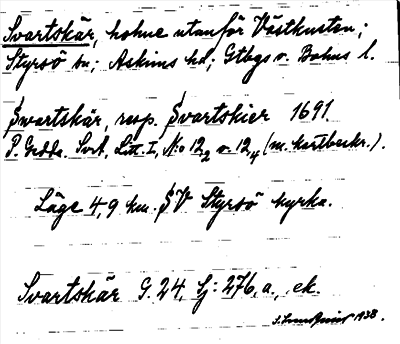 Svartskär, holme utanför Västkusten;
Styrsö sn; Askims hd; Gtbgs o. Bohus l.
Swartskär, resp. Svartskier 1691.
P. Gedda. Sv.A, Litt. I, N:o 12,2 o. 12,4 (m. kartbeskr.).
Läge 4,9 km. SV Styrsö kyrka.
Svartskär G. 24, Sj: 276, a., ek.
1938.